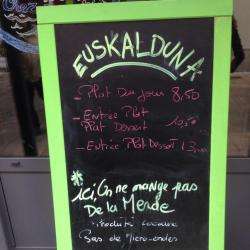 Chez
EUSKALDUNA
- Plat Du Jour 8,50
- Entrée Plat
Plat Dessert 10,50
- Entrée Plat Dessert 13
* ici, On ne mange pas
De la Merde
Produits Locaux
Pas de Micro-ondes